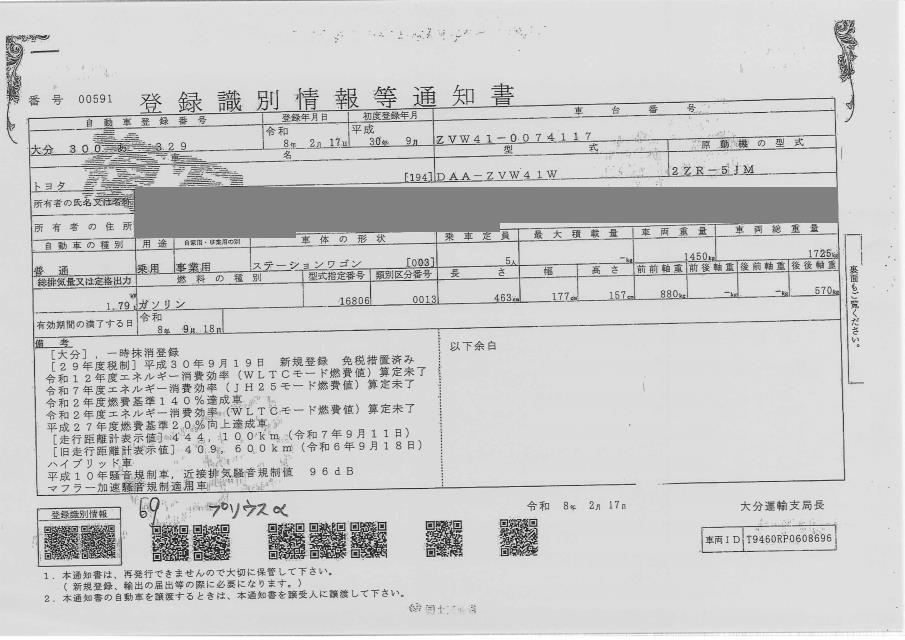 番号 00591 登録識別情報等通知書
自動車登録番号 登録年月日 初度登録年月 車台番号
大分 300 あ 329 令和 8年 2月 17日 平成 30年 9月 ZVW41-0074117
車名 型式 原動機の型式
トヨタ [194] DAA-ZVW41W 2ZR-5JM
所有者の氏名又は名称
所有者の住所
自動車の種別 用途 自家用・事業用の別 車体の形状 乗車定員 最大積載量 車両重量 車両総重量
普通 乗用 事業用 ステーションワゴン [003] 5人 -kg 1450kg 1725kg
総排気量又は定格出力 燃料の種別 型式指定番号 類別区分番号 長さ 幅 高さ 前前軸重 前後軸重 後前軸重 後後軸重
1.79 ガソリン 16806 0013 463cm 177cm 157cm 880kg -kg -kg 570kg
有効期間の満了する日 令和 8年 9月 18日
裏面もご覧ください。
備考
[大分],一時抹消登録
[29年度税制]平成30年9月19日 新規登録 免税措置済み
令和12年度エネルギー消費効率(WLTCモード燃費値)算定未了
令和7年度エネルギー消費効率(JH25モード燃費値)算定未了
令和2年度燃費基準140%達成車
令和2年度エネルギー消費効率(WLTCモード燃費値)算定未了
平成27年度燃費基準20%向上達成車
[走行距離計表示値]444,100km(令和7年9月11日)
[旧走行距離計表示値]409,600km(令和6年9月18日)
ハイブリッド車
平成10年騒音規制車,近接排気騒音規制値 96dB
マフラー加速騒音規制適用車
以下余白
登録識別情報 69 プリウスα 令和 8年 2月 17日 大分運輸支局長
車両ID T9460RP0608696
1.本通知書は、再発行できませんので大切に保管して下さい。
(新規登録、輸出の届出等の際に必要になります。)
2.本通知書の自動車を譲渡するときは、本通知書を譲受人に譲渡して下さい。